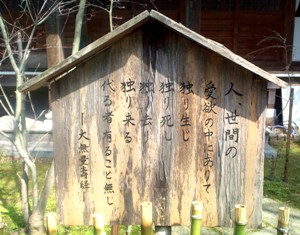 人、世間の
愛欲の中にありて
独り生じ
独り死し
独り去り
独り来る
代る者有ること無し
―大無量壽経―